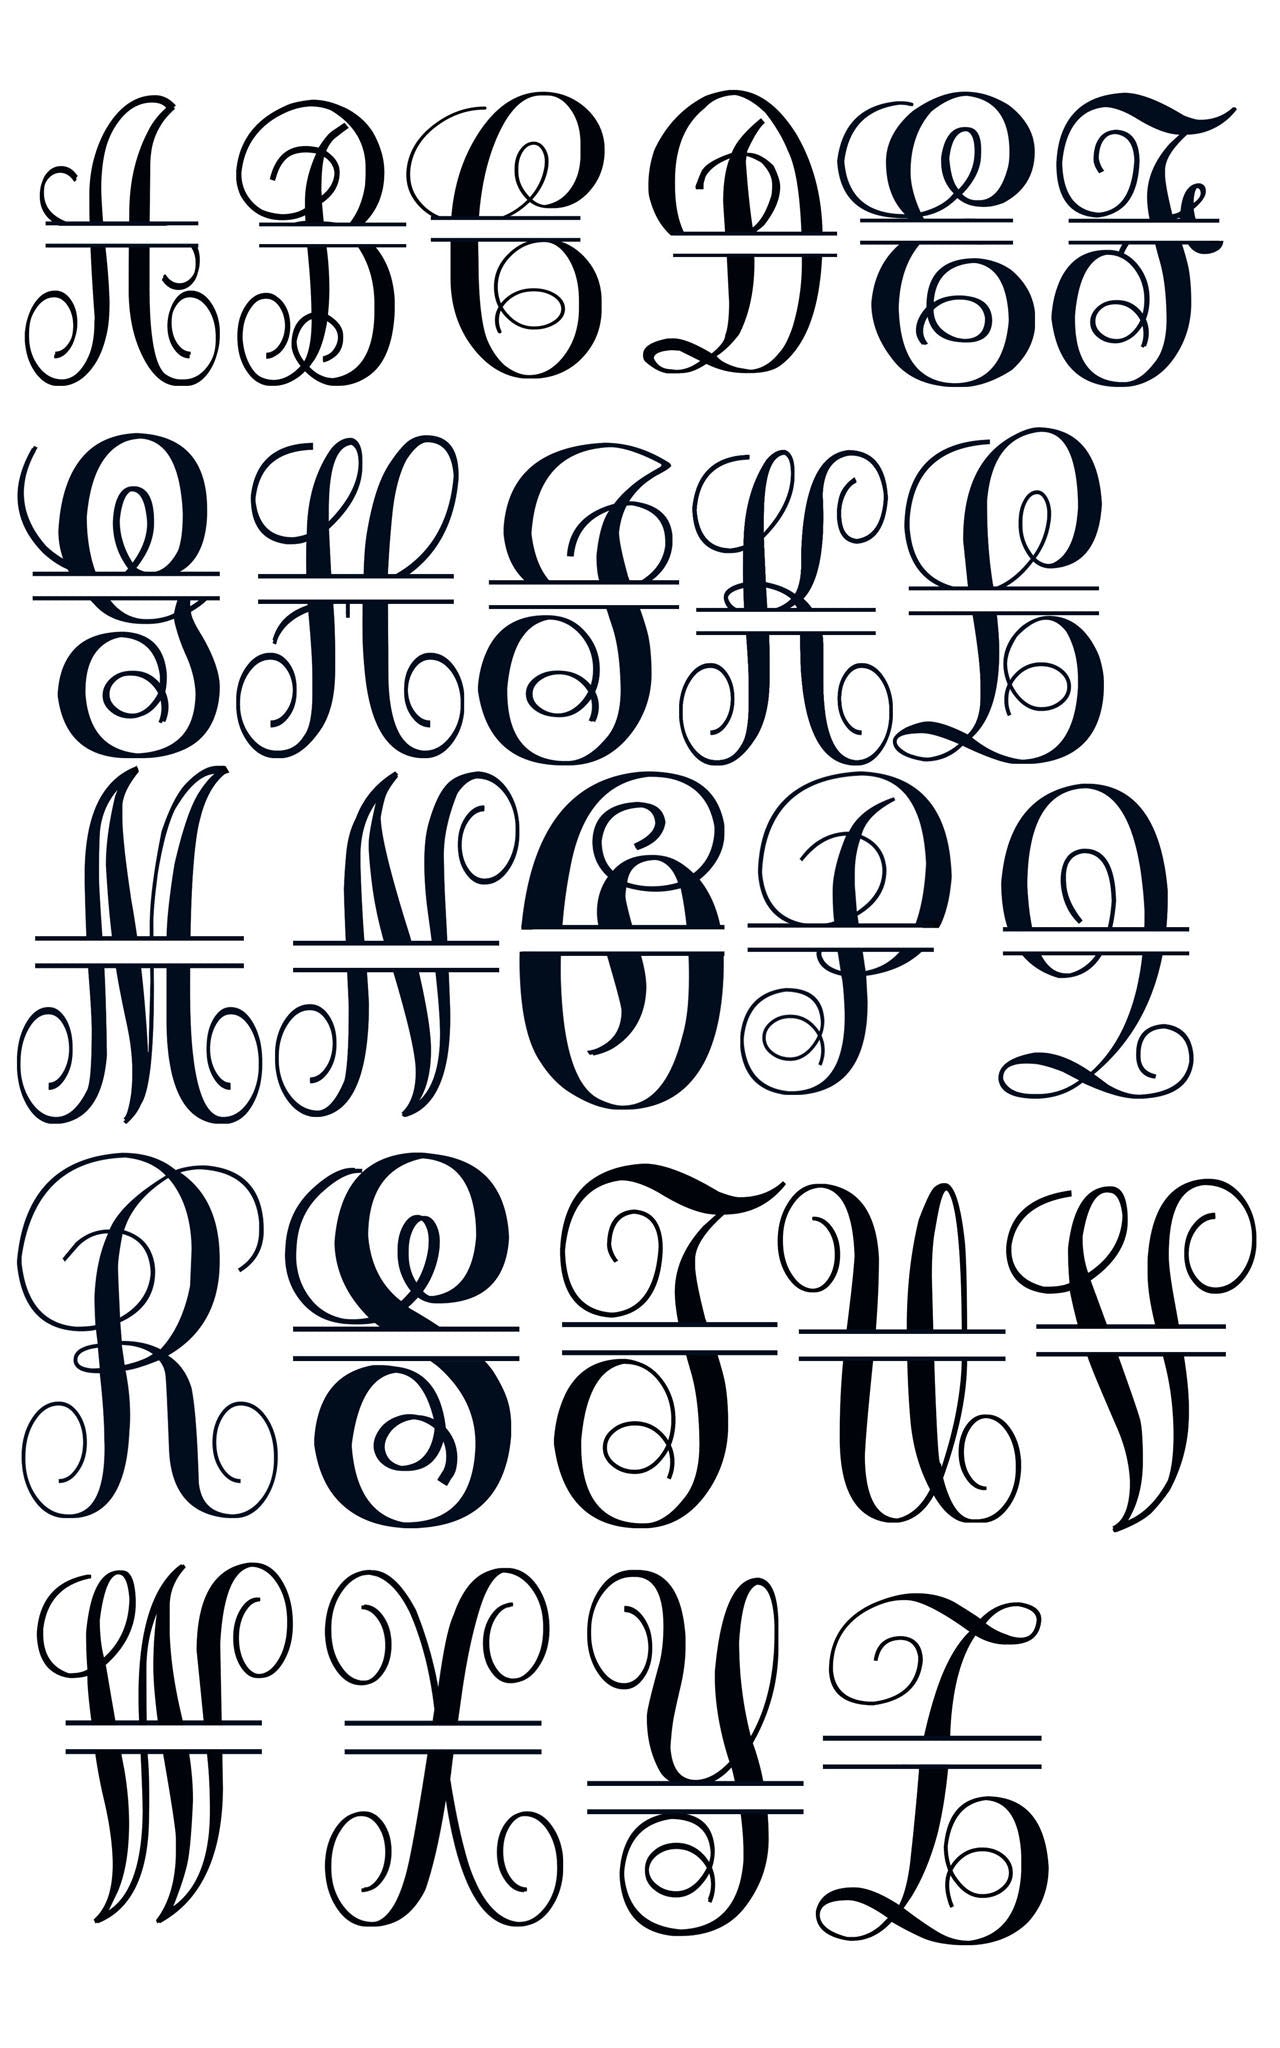 A B C D E F
G H K L
M N O P Q
R S T U V
W X Y Z